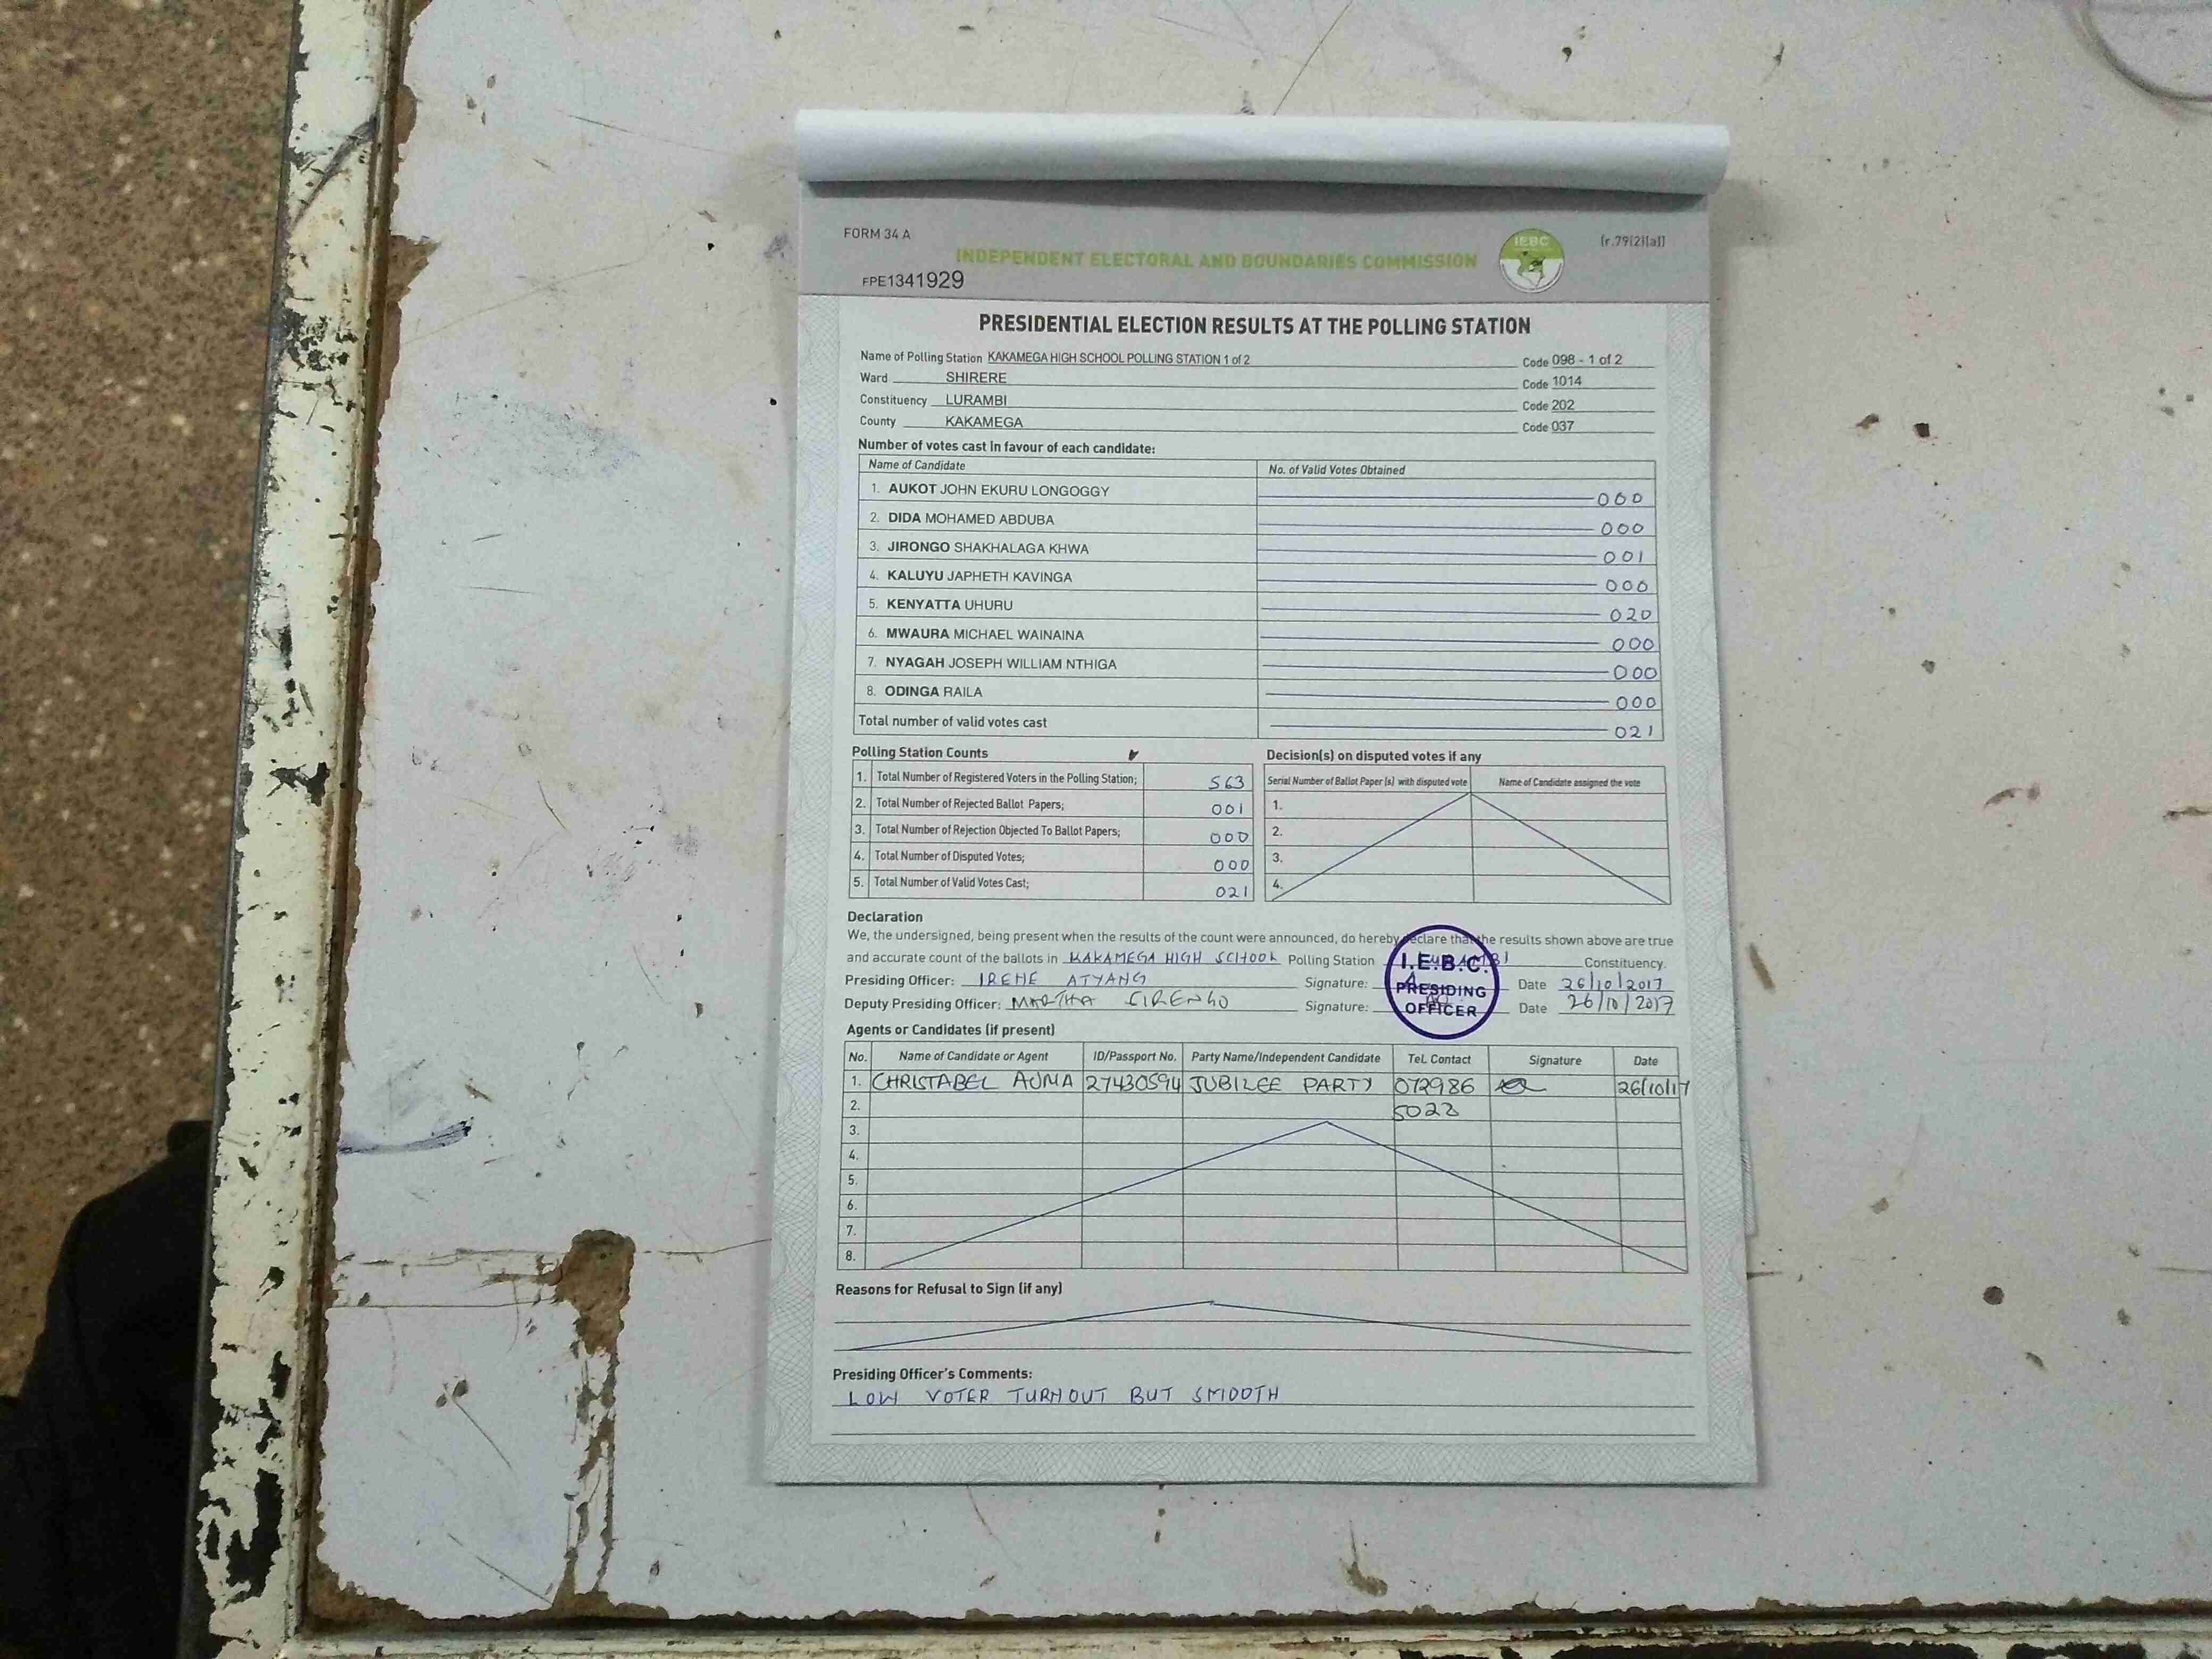 FORM 34 A
INDEPENDENT ELECTORAL AND BOUNDARIES COMMISSION
IEBC
[r.79(2)(a)]
FPE1341929
PRESIDENTIAL ELECTION RESULTS AT THE POLLING STATION
Name of Polling Station KAKAMEGA HIGH SCHOOL POLLING STATION 1 of 2 Code 098 - 1 of 2
Ward SHIRERE Code 1014
Constituency LURAMBI Code 202
County KAKAMEGA Code 037
Number of votes cast in favour of each candidate:
Name of Candidate No. of Valid Votes Obtained
1. AUKOT JOHN EKURU LONGOGGY 000
2. DIDA MOHAMED ABDUBA 000
3. JIRONGO SHAKHALAGA KHWA 001
4. KALUYU JAPHETH KAVINGA 000
5. KENYATTA UHURU 020
6. MWAURA MICHAEL WAINAINA 000
7. NYAGAH JOSEPH WILLIAM NTHIGA 000
8. ODINGA RAILA 000
Total number of valid votes cast 021
Polling Station Counts
1. Total Number of Registered Voters in the Polling Station; 563
2. Total Number of Rejected Ballot Papers; 001
3. Total Number of Rejection Objected To Ballot Papers; 000
4. Total Number of Disputed Votes; 000
5. Total Number of Valid Votes Cast; 021
Decision(s) on disputed votes if any
Serial Number of Ballot Paper (s) with disputed vote Name of Candidate assigned the vote
1.
2.
3.
4.
Declaration
We, the undersigned, being present when the results of the count were announced, do hereby declare that the results shown above are true
and accurate count of the ballots in KAKAMEGA HIGH SCHOOL Polling Station LURAMBI Constituency.
Presiding Officer: IRENE ATYANG Signature: Date 26/10/2017
Deputy Presiding Officer: MARTHA Signature: Date 26/10/2017
I.E.B.C.
PRESIDING
OFFICER
Agents or Candidates (if present)
No. Name of Candidate or Agent ID/Passport No. Party Name/Independent Candidate Tel. Contact Signature Date
1. CHRISTABEL AUMA 27430594 JUBILEE PARTY 072986 26/10/17
2. 5023
3.
4.
5.
6.
7.
8.
Reasons for Refusal to Sign (if any)
Presiding Officer's Comments:
LOW VOTER TURNOUT BUT SMOOTH